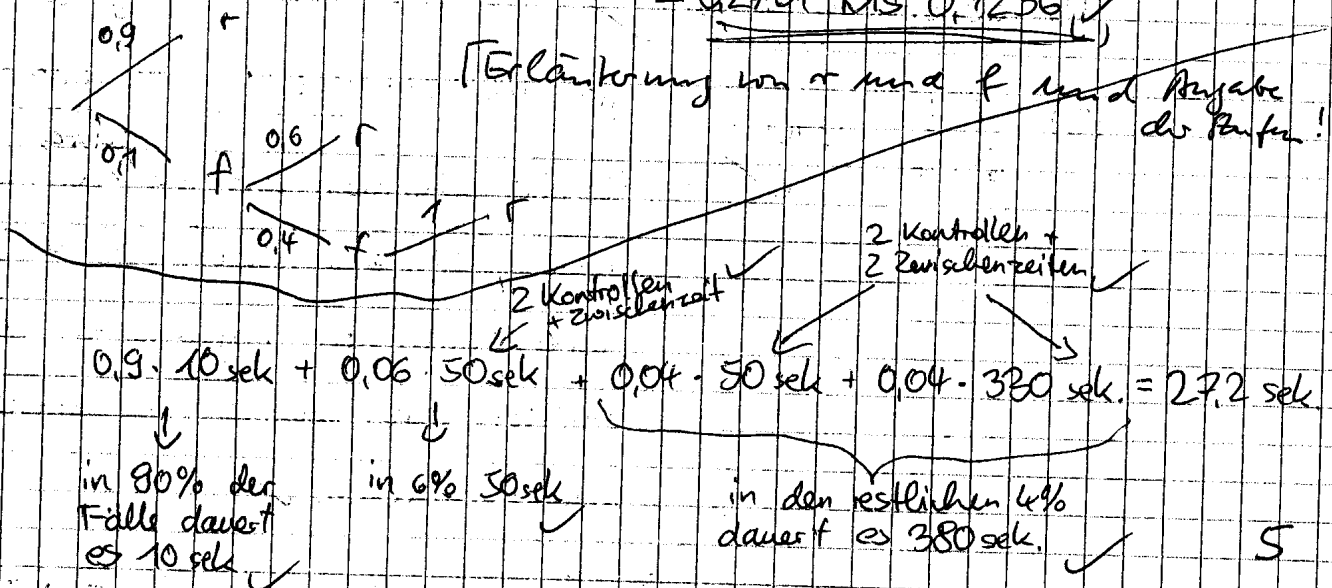 0,1256
0,9 r
[Erläuterung von r und f und Angabe
der Stufen!
0,1 f 0,6 r
0,4 f 1 r
2 Kontrollen +
2 Zwischenzeiten
2 Kontrollen
+ Zwischenzeit
0,9 · 10 sek + 0,06 · 50 sek + 0,04 · 50 sek + 0,04 · 330 sek. = 27,2 sek.
in 90% der
Fälle dauert
es 10 sek
in 6% 50 sek
in den restlichen 4%
dauert es 380 sek.
5